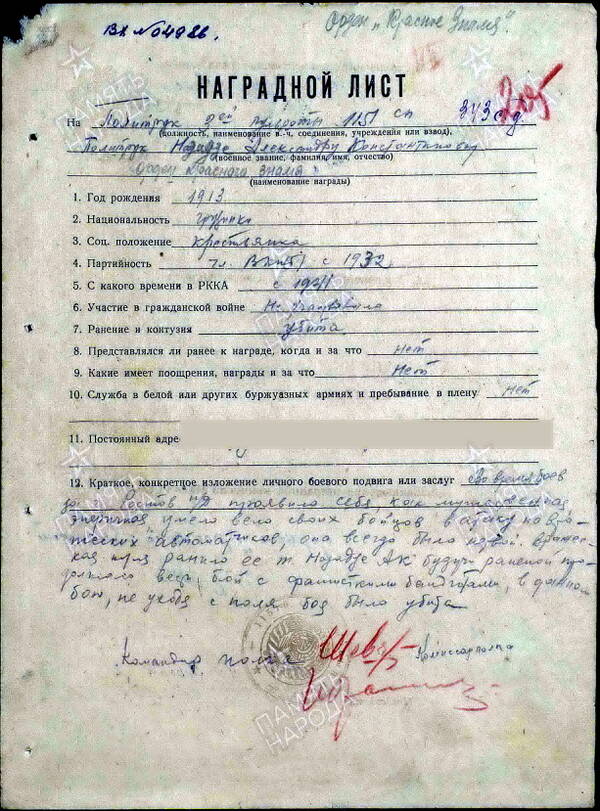 Вх №04986.
Орден „Красное Знамя".
НАГРАДНОЙ ЛИСТ
На Политрук 2ой 1151 сп 343 сд.
(должность, наименование в.-ч. соединения, учреждения или взвод),
Политрук Нададзе Александру Константиновну
(военное звание, фамилия, имя, отчество)
Орден Красного Знамя
(наименование награды)
1. Год рождения 1913
2. Национальность грузинка
3. Соц. положение крестьянка
4. Партийность чл. ВКП(б) с 1932
5. С какого времени в РККА с 1941
6. Участие в гражданской войне Не участвовала
7. Ранение и контузия убита
8. Представлялся ли ранее к награде, когда и за что нет
9. Какие имеет поощрения, награды и за что Нет
10. Служба в белой или других буржуазных армиях и пребывание в плену нет
11. Постоянный адре
12. Краткое, конкретное изложение личного боевого подвига или заслуг Во время боев
за г. Ростов н/д проявила себя как мужественная,
энергичная умело вела своих бойцов в атаку на
автоматчиков она всегда была первой. Вражес-
кая пуля ранило ее т. Нададзе АК будучи раненой про-
должала весь бой с фашисткими бандитами, в данном
бою, не уходя с поля боя была убита
Командир полка Комиссар полка
ПАМЯТЬ НАРОДА